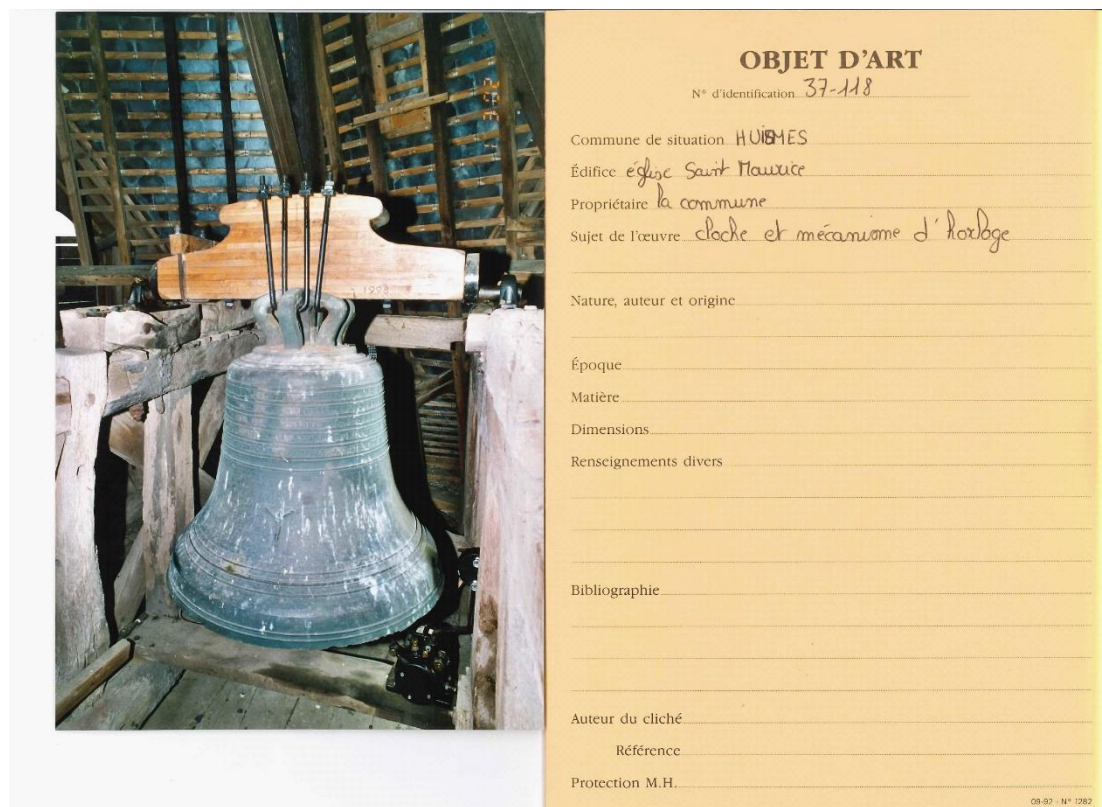 OBJET D'ART
N° d'identification 37-118
Commune de situation HUISMES
Édifice église Saint Maurice
Propriétaire la commune
Sujet de l'œuvre cloche et mécanisme d'horloge
Nature, auteur et origine
Époque
Matière
Dimensions
Renseignements divers
Bibliographie
Auteur du cliché
Référence
Protection M.H.
09-92 - N° 1282